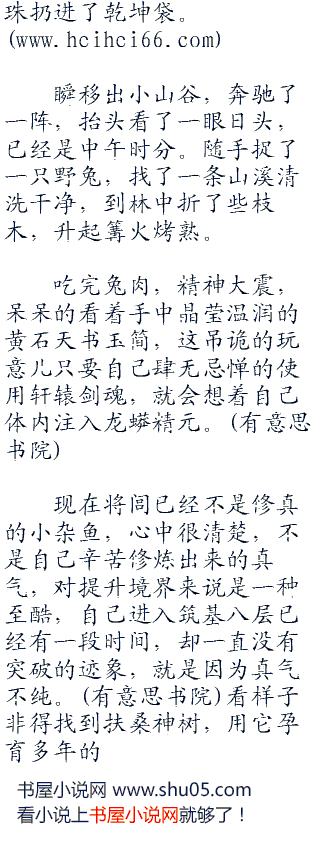 珠扔进了乾坤袋。
(www.hcihci66.com)
瞬移出小山谷，奔驰了
一阵，抬头看了一眼日头，
已经是中午时分。随手捉了
一只野兔，找了一条山溪清
洗干净，到林中折了些枝
木，升起篝火烤熟。
吃完兔肉，精神大震，
呆呆的看着手中晶莹温润的
黄石天书玉简，这吊诡的玩
意儿只要自己肆无忌惮的使
用轩辕剑魂，就会想着自己
体内注入龙蟒精元。(有意思
书院)
现在将闾已经不是修真
的小杂鱼，心中很清楚，不
是自己辛苦修炼出来的真
气，对提升境界来说是一种
至酷，自己进入筑基八层已
经有一段时间，却一直没有
突破的迹象，就是因为真气
不纯。(有意思书院)看样子
非得找到扶桑神树，用它孕
育多年的
书屋小说网 www.shu05.com
看小说上书屋小说网就够了！